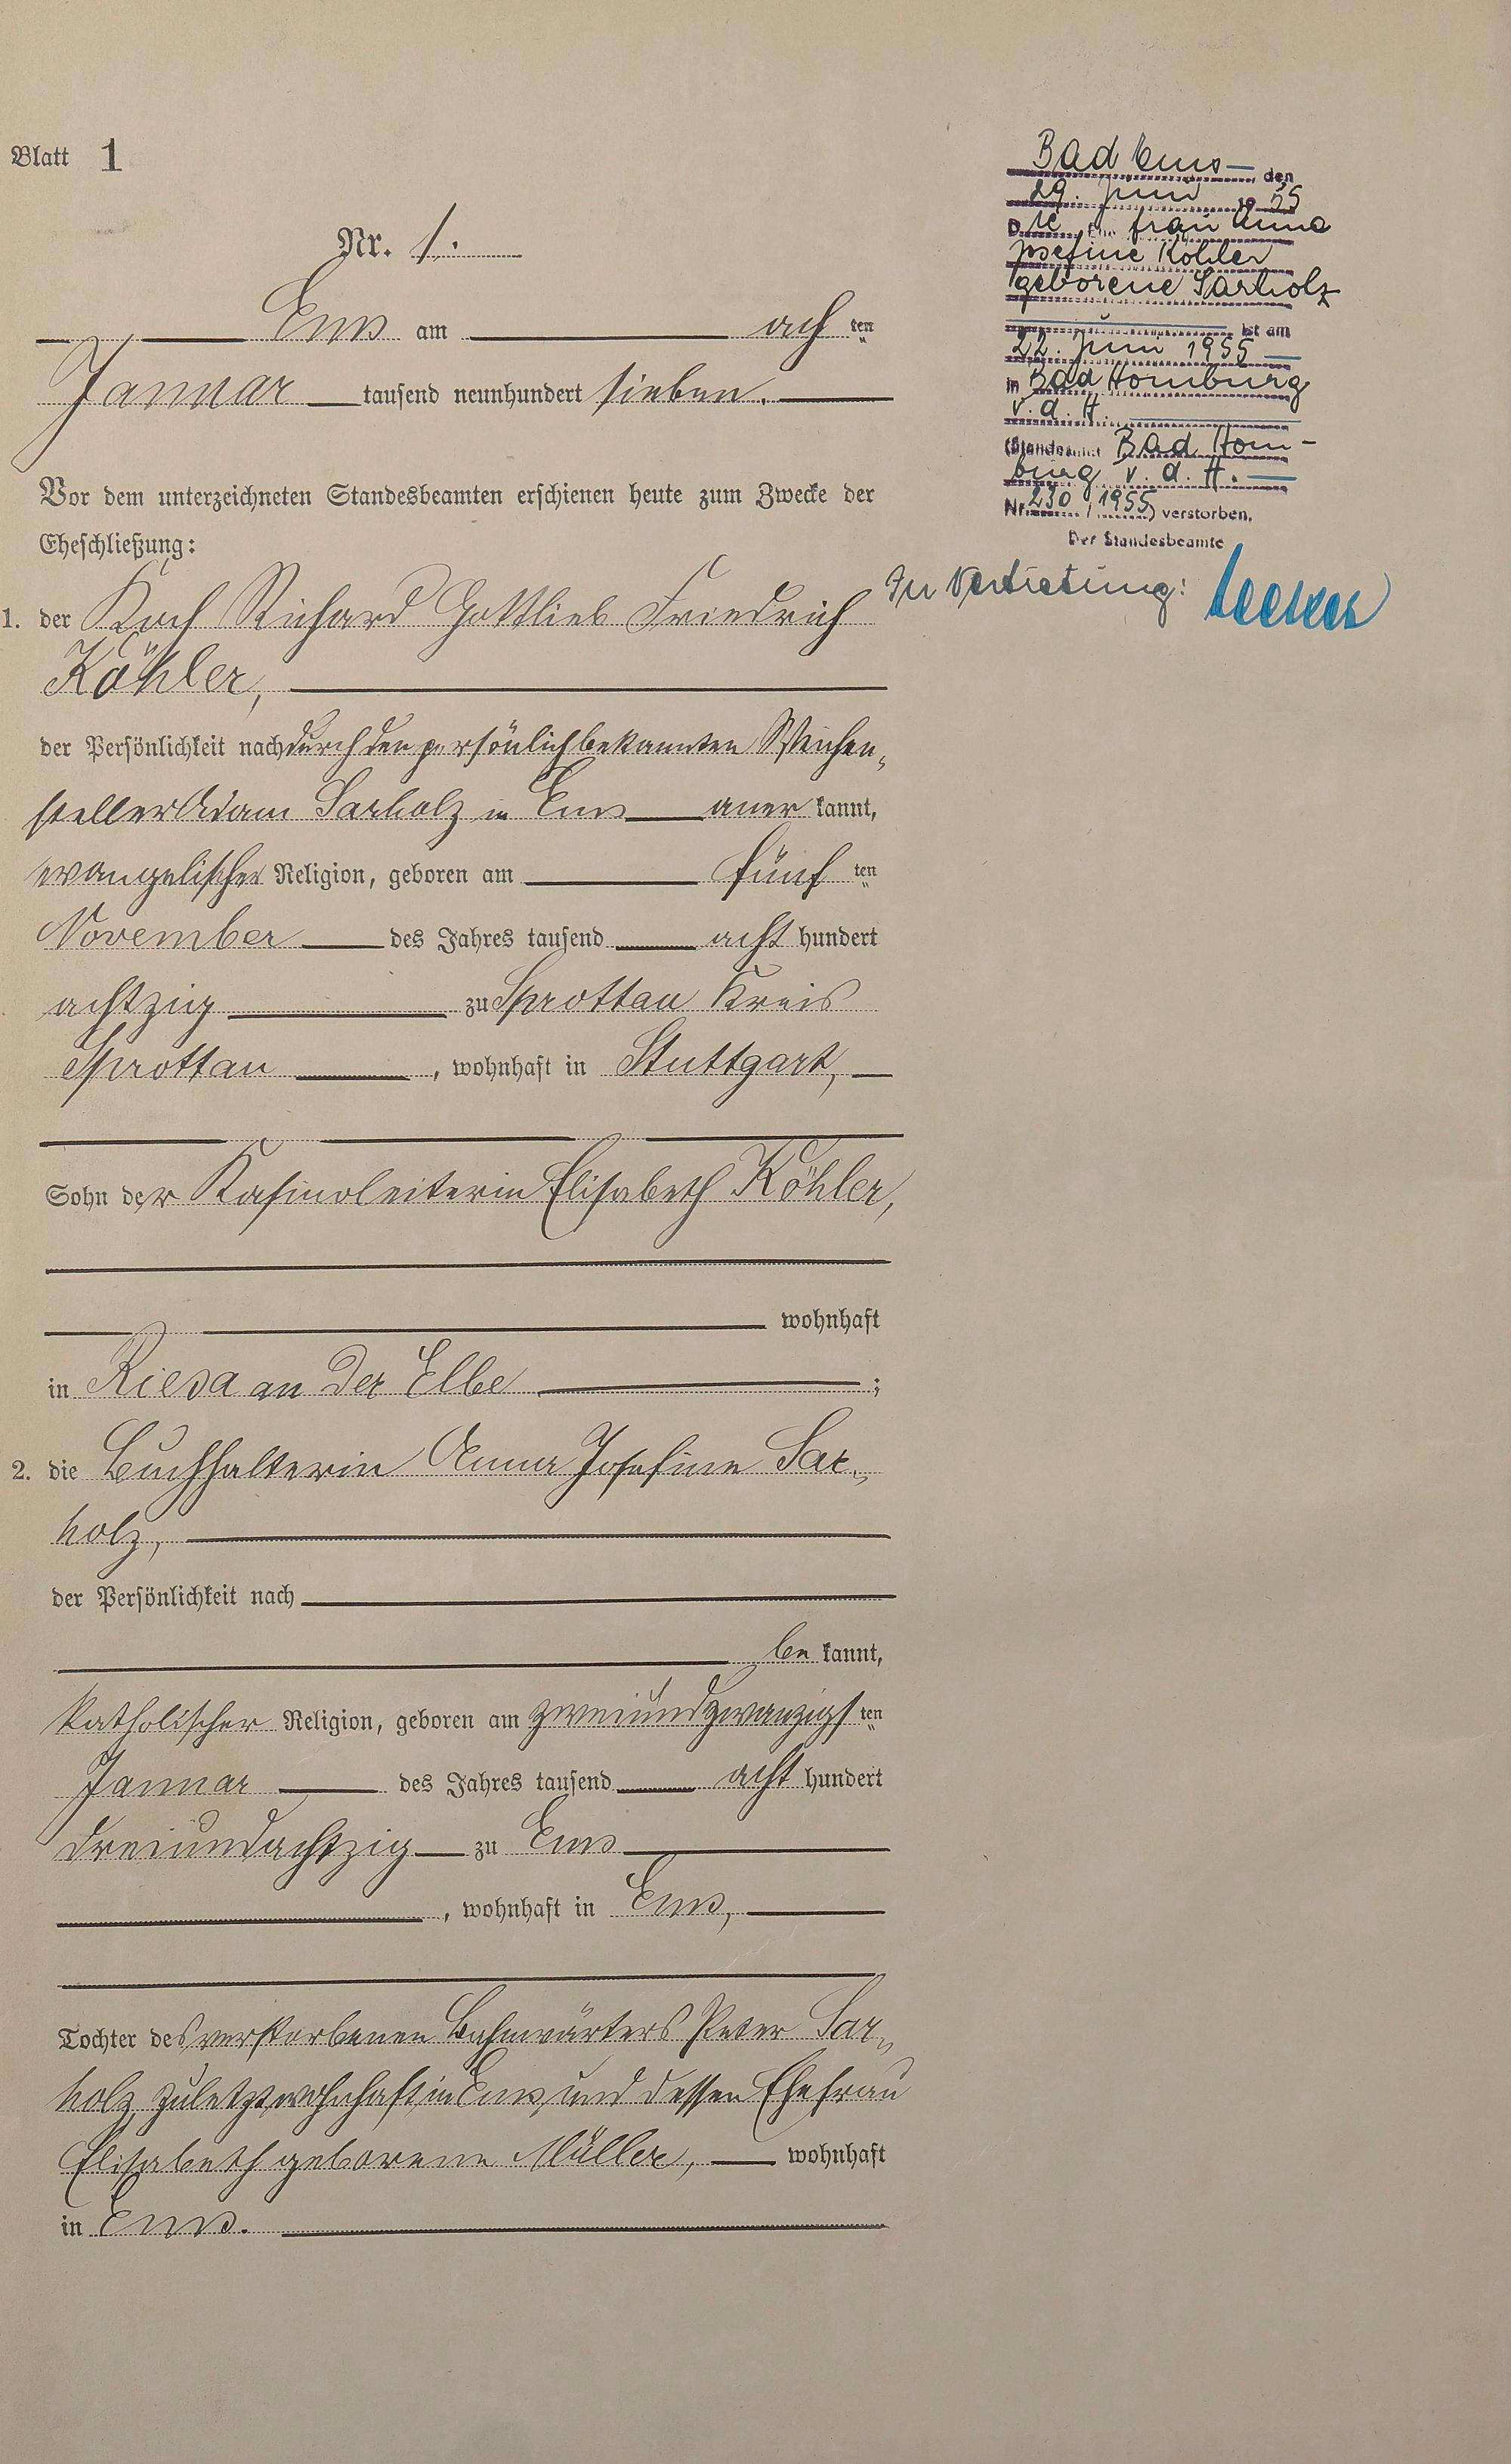 Blatt 1
Nr. 1.
Ems am achten
Januar tausend neunhundert sieben.
Vor dem unterzeichneten Standesbeamten erschienen heute zum Zwecke der
Eheschließung:
1. der Koch Richard Gottlieb Friedrich
Köhler,
der Persönlichkeit nach durch den persönlich bekannten Weichen-
steller Adam Sarholz in Ems anerkannt,
evangelischer Religion, geboren am fünften
November des Jahres tausend acht hundert
achtzig zu Sprottau Kreis
Sprottau, wohnhaft in Stuttgart,
Sohn der Kasinoleiterin Elisabeth Köhler,
wohnhaft
in Riesa an der Elbe;
2. die Buchhalterin Anna Josefine Sar-
holz,
der Persönlichkeit nach
bekannt,
katholischer Religion, geboren am zweiundzwanzigsten
Januar des Jahres tausend acht hundert
dreiundachtzig zu Ems
, wohnhaft in Ems,
Tochter des verstorbenen Bahnwärters Peter Sar-
holz, zuletzt wohnhaft in Ems, und dessen Ehefrau
Elisabeth geborene Müller, wohnhaft
in Ems.
Bad Ems, den
29. Juni 1955
Die Frau Anna
Josefine Köhler
geborene Sarholz
ist am
22. Juni 1955
in Bad Homburg
v. d. H.
(Standesamt Bad Hom-
burg v. d. H.
Nr. 230 / 1955) verstorben.
Der Standesbeamte
In Vertretung: